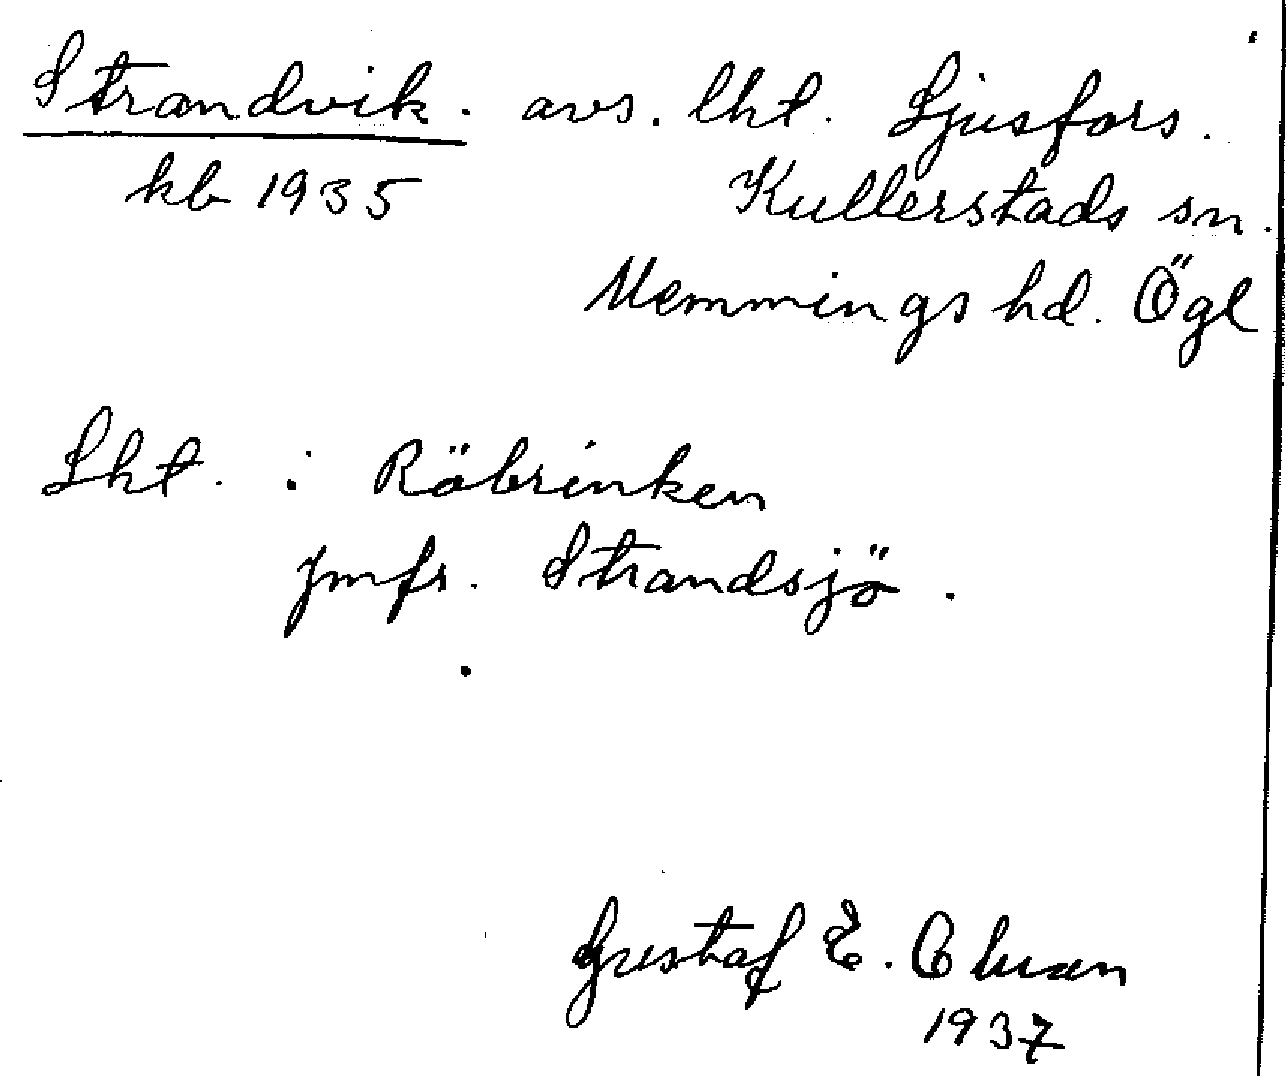 Strandvik. avs. lht. Ljusfors.
kb 1935 Kullerstads sn.
Memmings hd. Ögl
Lht. : Röbrinken
jmfr. Strandsjö.
Gustaf E.
1937